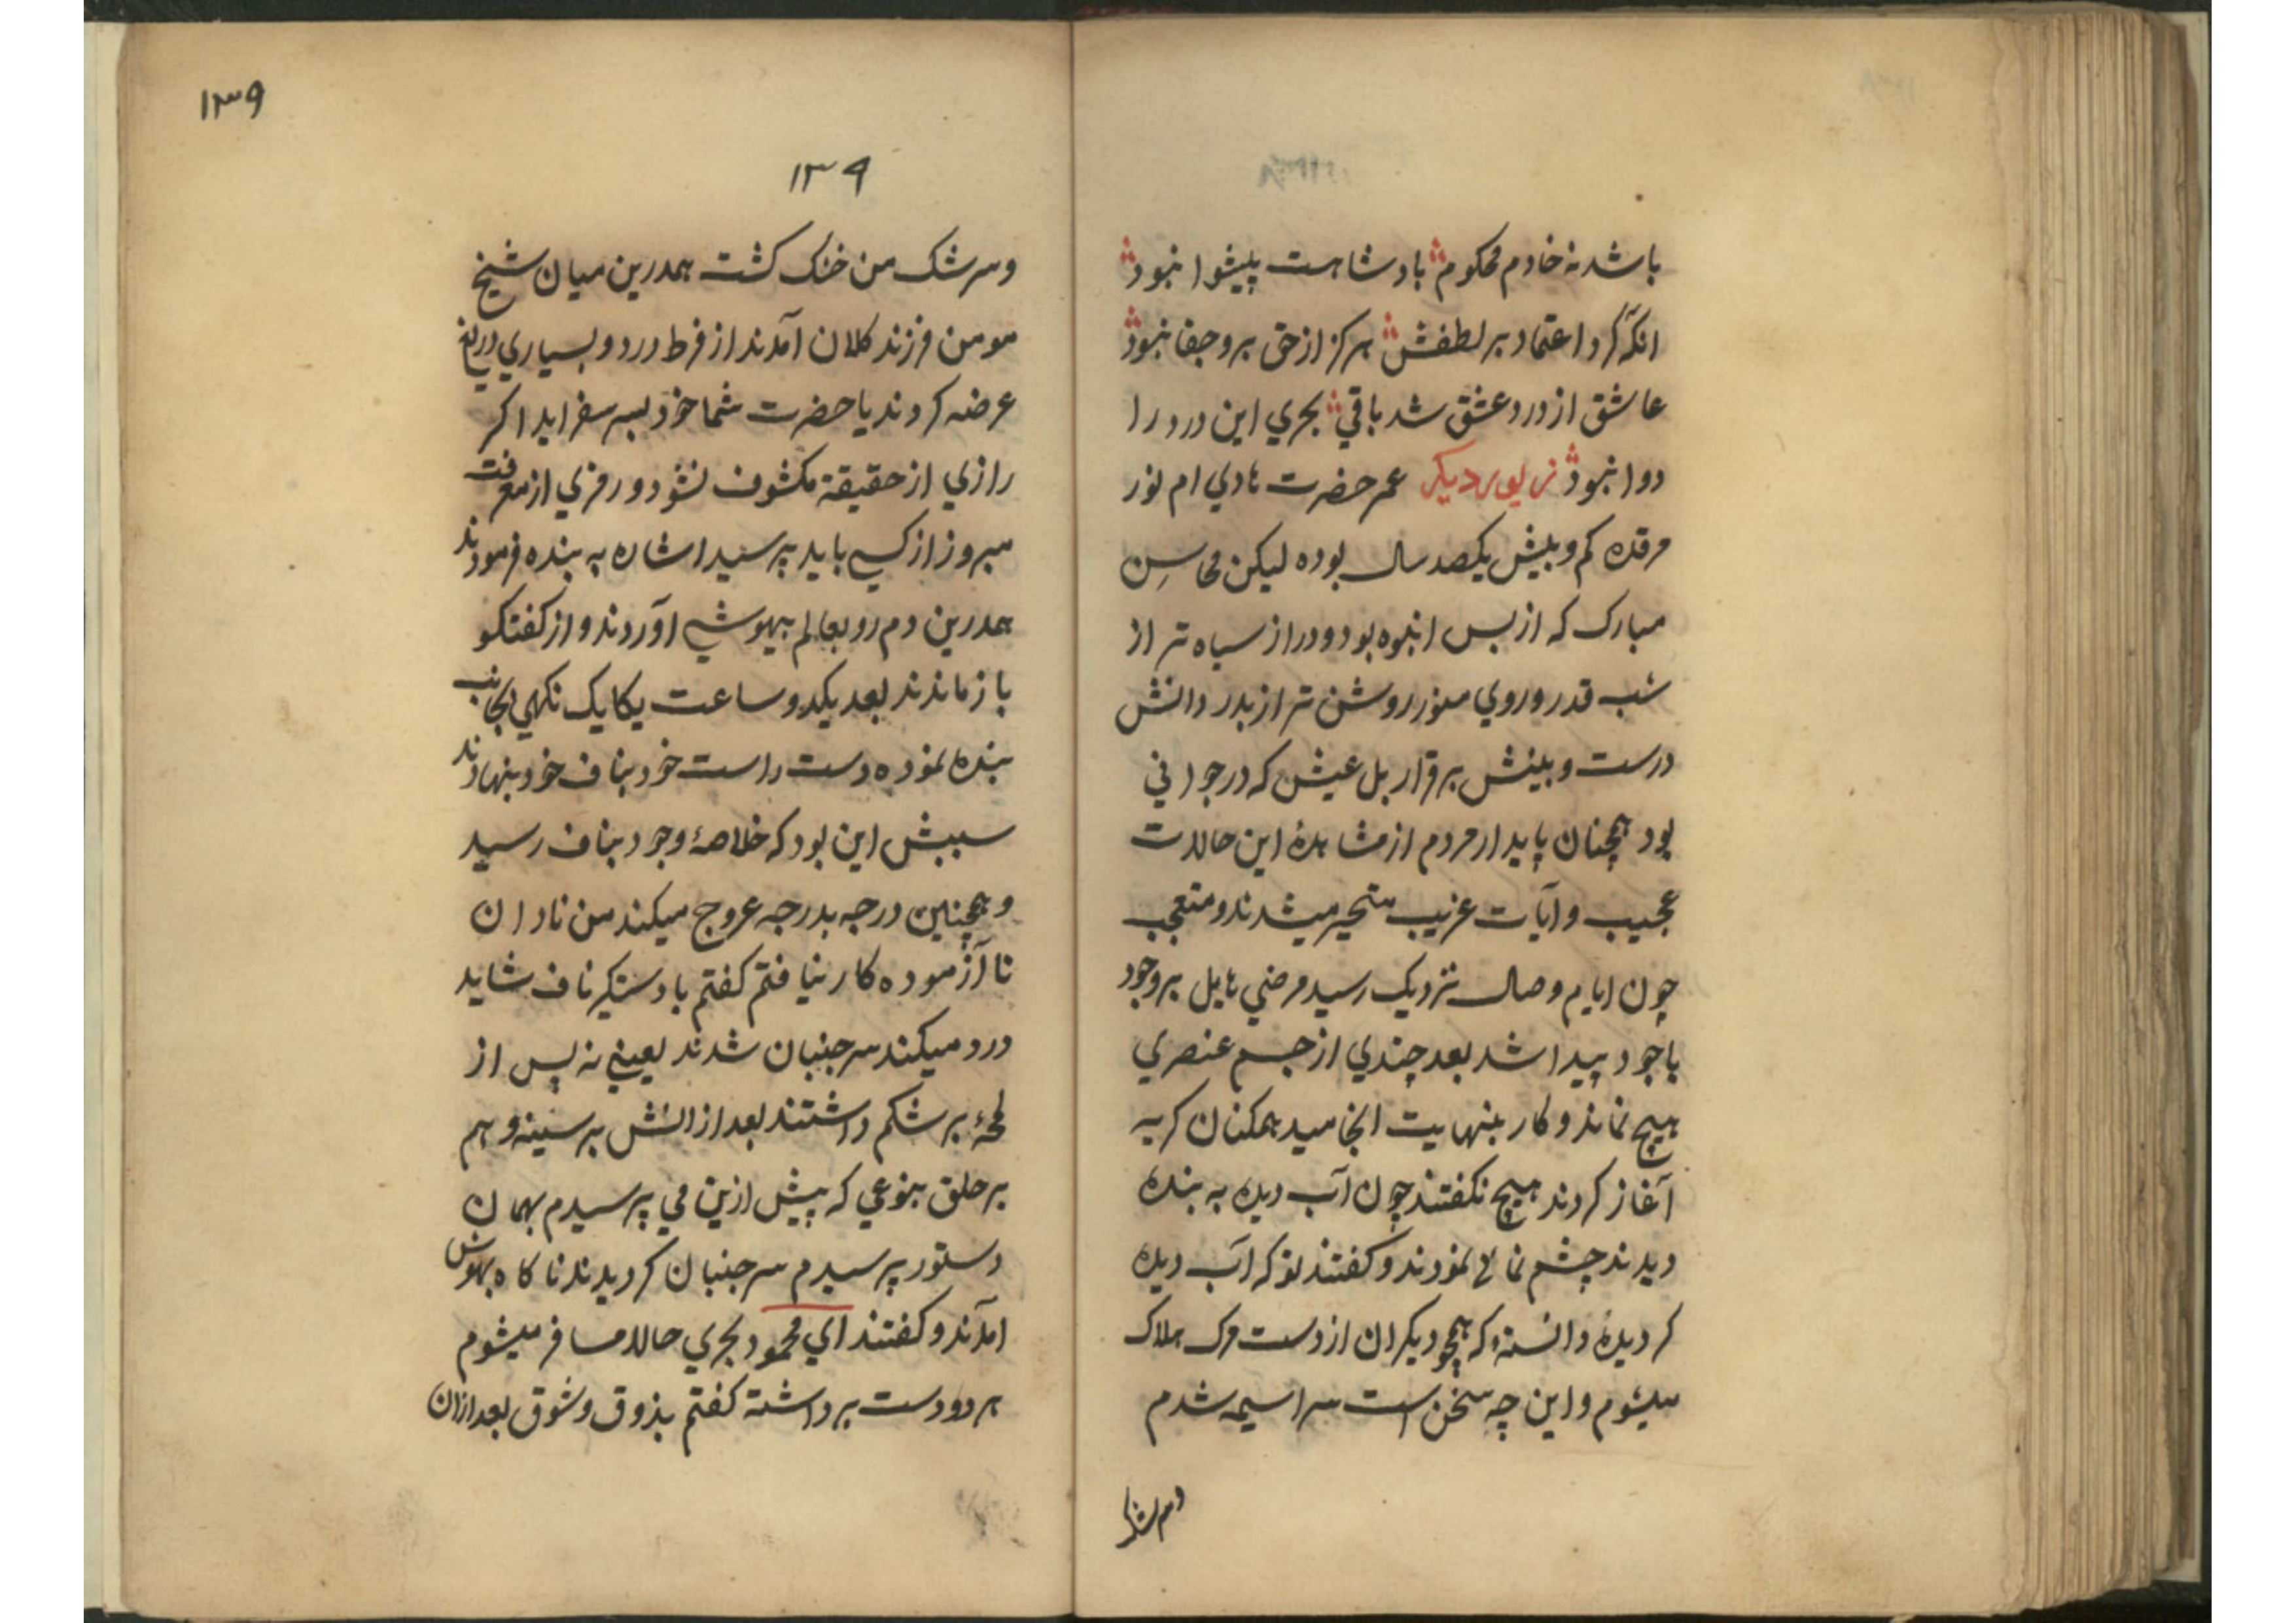 باشد نه خادم محکوم بادشاهست پیشوا نبود
انکه کرد اعتماد بر لطفش هرکز از حق برو جفا نبود
عاشق از درد عشق شد باقي بحري این درد را
دوا نبود زیور دیکر عمر حضرت هادي ام نور
مرقده کم و بیش یکصد سال بوده لیکن محاسنِ
مبارک که از بس انبوه بود و دراز سیاه تر از
شب قدر و روي منور روشن تر از بدر دانش
درست و بینش برقرار بل عیش که در جواني
بود همچنان پایدار مردم از مشاهدهٔ این حالات
عجیب و آیات غریب متحیر میشدند و متعجب
چون ایام وصال نزدیک رسید مرضي هایل بر وجود
باجود پیدا شد بعد چندي از جسم عنصري
هیچ نماند و کار بنهایت انجامید همکنان کریه
آغاز کردند هیچ نکفتند چون آب دیده به بنده
دیدند چشم نمائی نمودند و کفتند توکه آب دیده
کردیدهٔ دانستهٔ که همچو دیکران از دست مرک هلاک
میشوم و این چه سخن است سراسیمه شدم
۱۳۹
۱۳۹
و سرشک من خنک کشت همدرین میان شیخ
مومن فرزند کلان آمدند از فرط درد و بسیاري دریغ
عرضه کردند یا حضرت شما خود بسر سفر اید اکر
رازي از حقیقة مکشوف نشود و رمزي از معرفت
مبروز از کسي باید پرسید اشاره به بنده فرمودند
همدرین دم رو بعالم بیهوشي آوردند و از کفتکو
باز ماندند بعد یکدو ساعت یکایک نکهي بجانب
بنده نموده دست راست خود بناف خود بنهادند
سببش این بود که خلاصهٔ وجود بناف رسید
و همچنین درجه بدرجه عروج میکند من نادان
نا آزموده کار نیافتم کفتم یا دستکیر ناف شاید
درد میکند سر جنبان شدند یعني نه پس از
لمحهٔ بر شکم داشتند بعد از انش بر سینه و هم
بر حلق بنوعي که پیش ازین مي پرسیدم بهمان
دستور پرسیدم سر جنبان کردیدند ناکاه بهوش
آمدند و کفتند اي محمود بحري حالا مسافر میشوم
هر دو دست برداشته کفتم بذوق و شوق بعد ازان